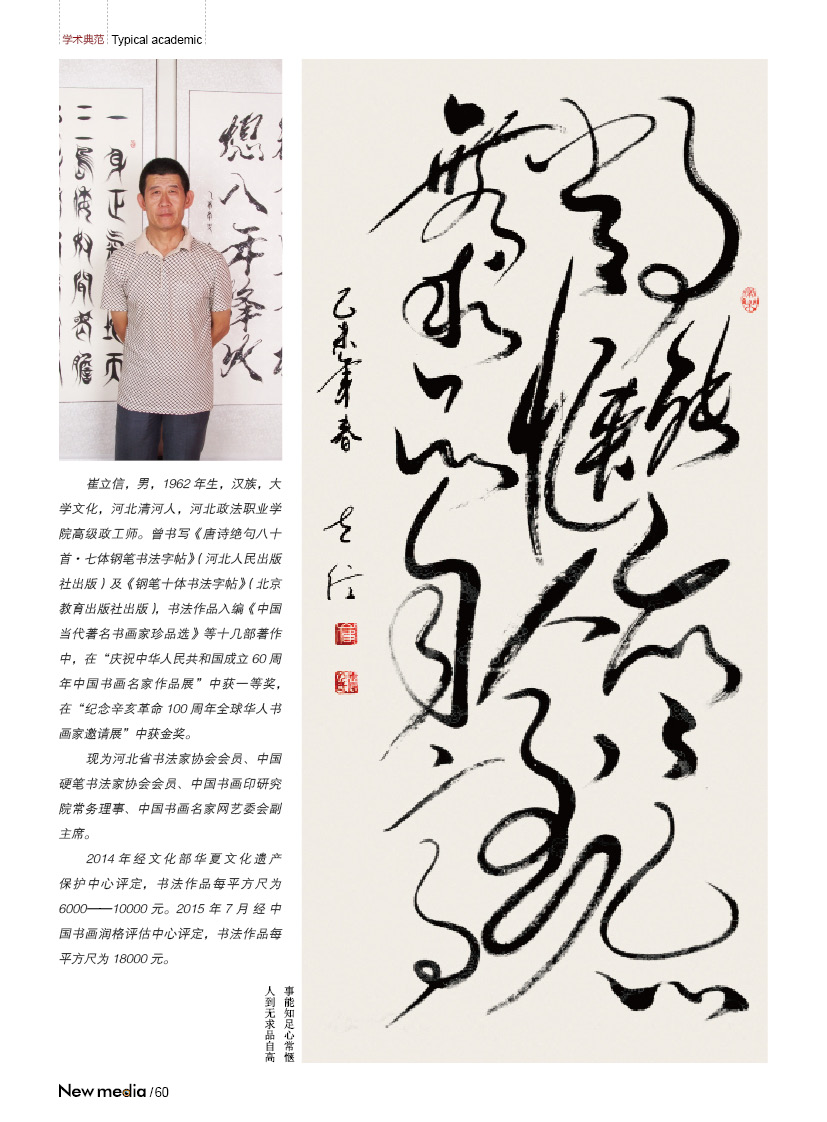 学术典范 Typical academic
一身正气
懲八年烽火
崔立信，男，1962 年生，汉族，大
学文化，河北清河人，河北政法职业学
院高级政工师。曾书写《唐诗绝句八十
首·七体钢笔书法字帖》（河北人民出版
社出版）及《钢笔十体书法字帖》（北京
教育出版社出版），书法作品入编《中国
当代著名书画家珍品选》等十几部著作
中，在“庆祝中华人民共和国成立 60 周
年中国书画名家作品展”中获一等奖，
在“纪念辛亥革命 100 周年全球华人书
画家邀请展”中获金奖。
现为河北省书法家协会会员、中国
硬笔书法家协会会员、中国书画印研究
院常务理事、中国书画名家网艺委会副
主席。
2014 年经文化部华夏文化遗产
保护中心评定，书法作品每平方尺为
6000——10000 元。2015 年 7 月经中
国书画润格评估中心评定，书法作品每
平方尺为 18000 元。
事能知足心常惬
人到无求品自高
事能知足心
常惬人到
无求品自高
乙未年春 立信
New media /60